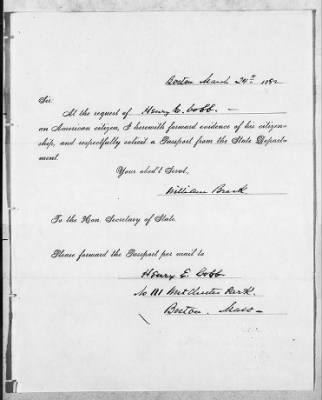 Boston March 24th 1882
Sir:
At the request of Henry E. Cobb –
an American citizen, I herewith forward evidence of his citizen-
ship, and respectfully solicit a Passport from the State Depart-
ment.
Your obed't Servt,
William
To the Hon. Secretary of State.
Please forward the Passport per mail to
Henry E. Cobb
No Chester Park.
Boston. Mass –